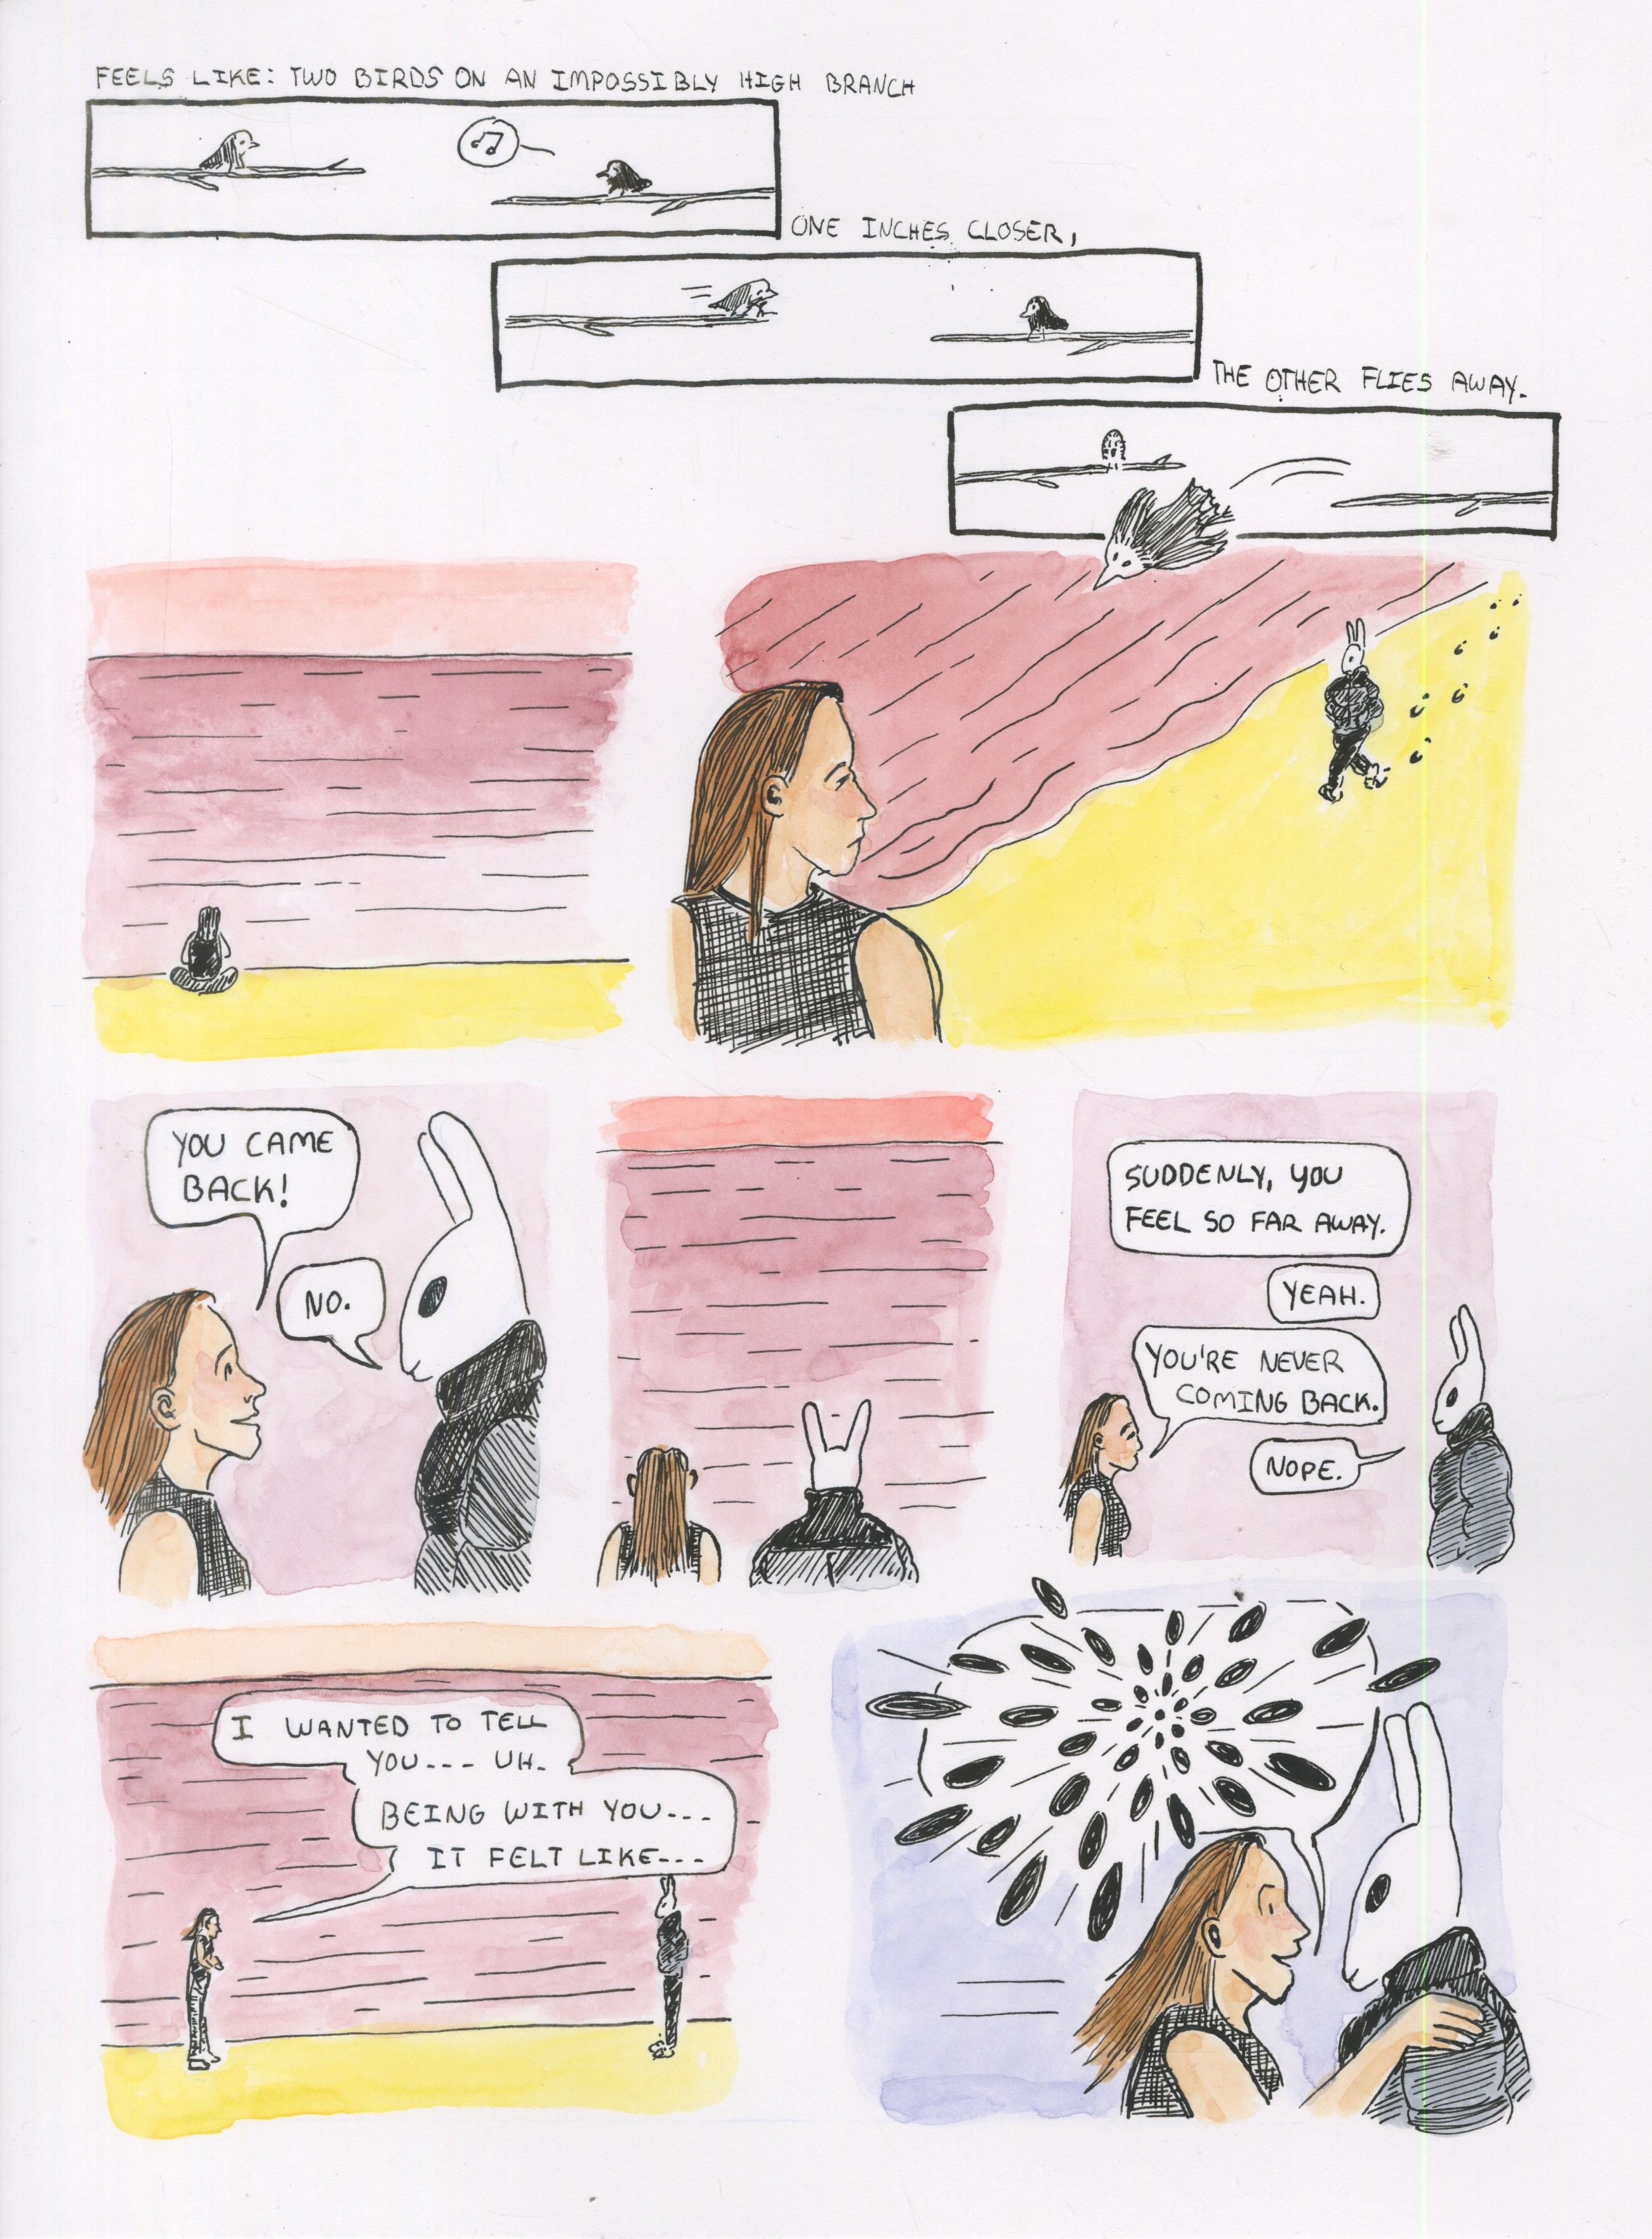 FEELS LIKE: TWO BIRDS ON AN IMPOSSIBLY HIGH BRANCH
ONE INCHES CLOSER,
THE OTHER FLIES AWAY.
YOU CAME
BACK!
NO.
SUDDENLY, YOU
FEEL SO FAR AWAY.
YEAH.
YOU'RE NEVER
COMING BACK.
NOPE.
I WANTED TO TELL
YOU--- UH.
BEING WITH YOU---
IT FELT LIKE---